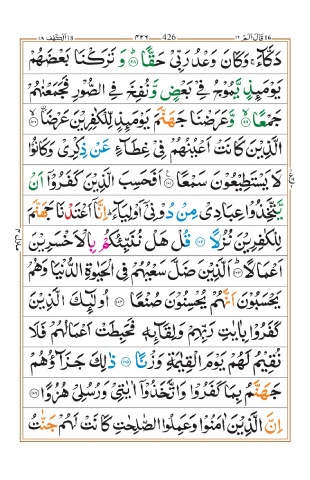 ١٦ قَالَ اَلَمْ ١٦ 426 ٤٢٦ اَلْكَهْف ١٨
دَكَّآءَ ۚ وَكَانَ وَعْدُ رَبِّىْ حَقًّا ؕ‏ ﴿۹۸﴾ وَتَرَكْنَا بَعْضَهُمْ
يَوْمَىِٕذٍ يَّمُوْجُ فِىْ بَعْضٍ وَّنُفِخَ فِى الصُّوْرِ فَجَمَعْنٰهُمْ
جَمْعًا ۙ‏ ﴿۹۹﴾ وَّعَرَضْنَا جَهَنَّمَ يَوْمَىِٕذٍ لِّلْكٰفِرِيْنَ عَرْضَا ۙ‏ ﴿۱۰۰﴾
الَّذِيْنَ كَانَتْ اَعْيُنُهُمْ فِىْ غِطَآءٍ عَنْ ذِكْرِىْ وَكَانُوْا
لَا يَسْتَطِيْعُوْنَ سَمْعًا ‏ ﴿۱۰۱﴾ اَفَحَسِبَ الَّذِيْنَ كَفَرُوْۤا اَنْ
يَّتَّخِذُوْا عِبَادِىْ مِنْ دُوْنِىْۤ اَوْلِيَآءَ ؕ اِنَّاۤ اَعْتَدْنَا جَهَنَّمَ
لِلْكٰفِرِيْنَ نُزُلًا ‏ ﴿۱۰۲﴾ قُلْ هَلْ نُنَبِّئُكُمْ بِالْاَخْسَرِيْنَ
اَعْمَالًا ؕ‏ ﴿۱۰۳﴾ اَلَّذِيْنَ ضَلَّ سَعْيُهُمْ فِى الْحَيٰوةِ الدُّنْيَا وَهُمْ
يَحْسَبُوْنَ اَنَّهُمْ يُحْسِنُوْنَ صُنْعًا ‏ ﴿۱۰۴﴾ اُولٰٓىِٕكَ الَّذِيْنَ
كَفَرُوْا بِاٰيٰتِ رَبِّهِمْ وَلِقَآىِٕهٖ فَحَبِطَتْ اَعْمَالُهُمْ فَلَا
نُقِيْمُ لَهُمْ يَوْمَ الْقِيٰمَةِ وَزْنًا ‏ ﴿۱۰۵﴾ ذٰلِكَ جَزَآؤُهُمْ
جَهَنَّمُ بِمَا كَفَرُوْا وَاتَّخَذُوْۤا اٰيٰتِىْ وَرُسُلِىْ هُزُوًا ‏ ﴿۱۰۶﴾
اِنَّ الَّذِيْنَ اٰمَنُوْا وَعَمِلُوا الصّٰلِحٰتِ كَانَتْ لَهُمْ جَنّٰتُ